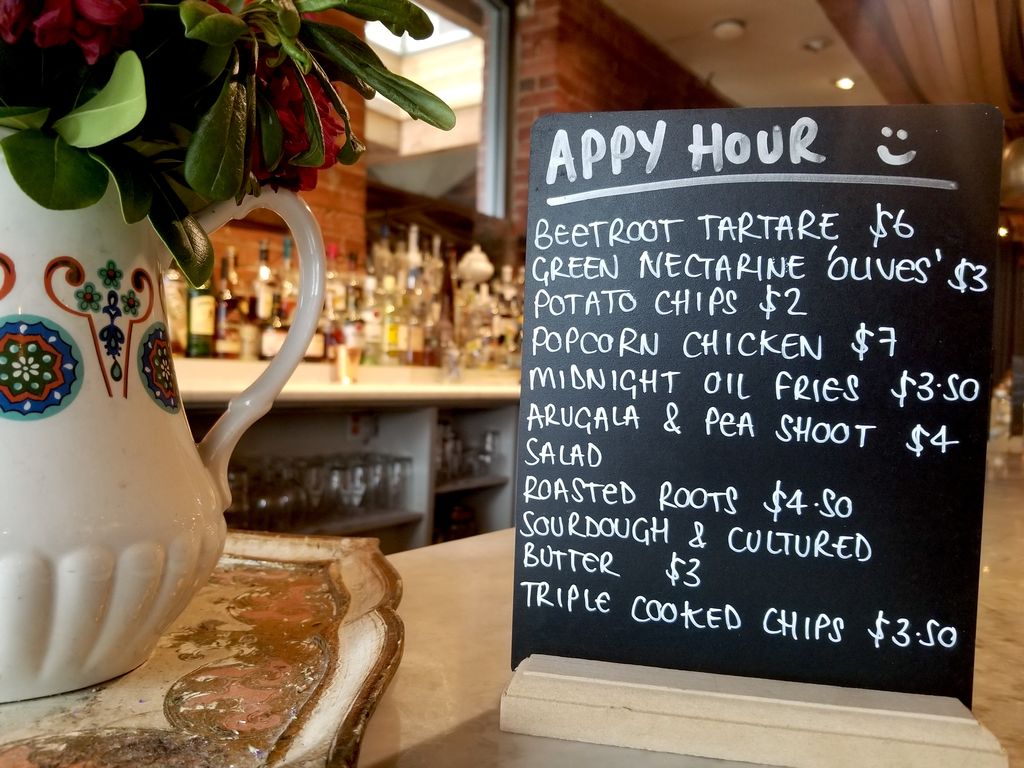 APPY HOUR
BEETROOT TARTARE $6
GREEN NECTARINE 'OLIVES' $3
POTATO CHIPS $2
POPCORN CHICKEN $7
MIDNIGHT OIL FRIES $3.50
ARUGALA & PEA SHOOT $4
SALAD
ROASTED ROOTS $4.50
SOURDOUGH & CULTURED
BUTTER $3
TRIPLE COOKED CHIPS $3.50